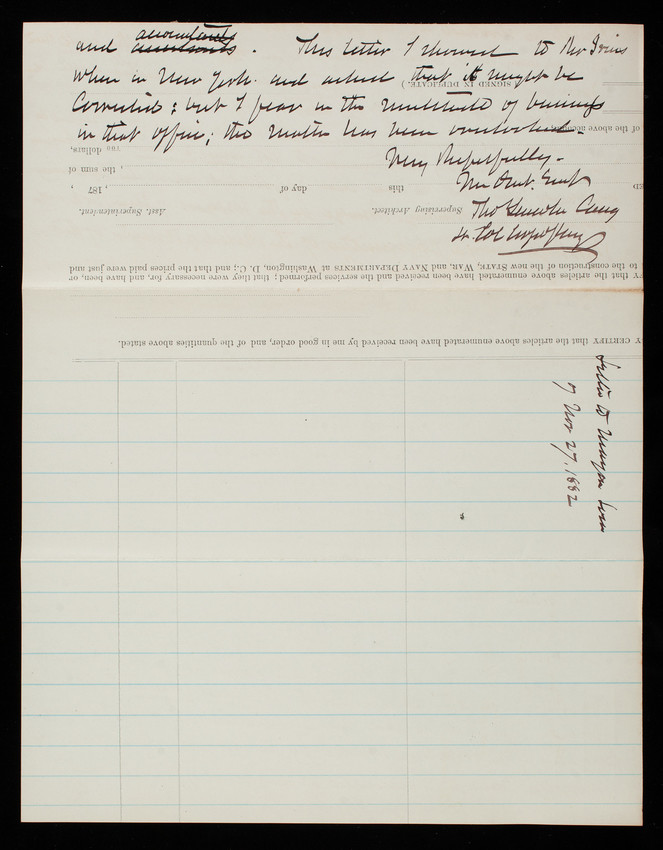 and accountants accounts. This letter I showed to Mr Irvin
when in New York and asked that it might be
corrected; but I fear in the multitude of business
in that office; the matter has been overlooked.
Very Respectfully.
Your Obdt. Servt
Thos Lincoln Casey
Lt. Col.
Letter to
of Nov 27. 1882
(SIGNED IN DUPLICATE.)
of the above account
dollars,
, the sum of
this
day of
, 187 ,
Supervising Architect.
Asst. Superintendent.
FY that the articles above enumerated have been received and the services performed; that they were necessary for, and have been, or
to the construction of the new STATE, WAR, AND NAVY DEPARTMENTS at Washington, D. C.; and that the prices paid were just and
Y CERTIFY that the articles above enumerated have been received by me in good order, and of the quantities above stated.